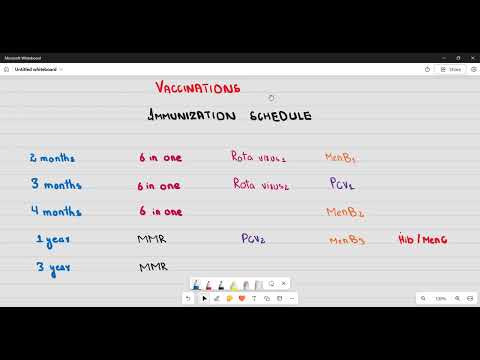 Microsoft Whiteboard
Untitled whiteboard
Share
VACCINATIONS
IMMUNIZATION SCHEDULE
2 months 6 in one Rota virus1 MenB1
3 months 6 in one Rota virus2 PCV1
4 months 6 in one MenB2
1 year MMR PCV2 MenB3 Hib/MenC
3 year MMR